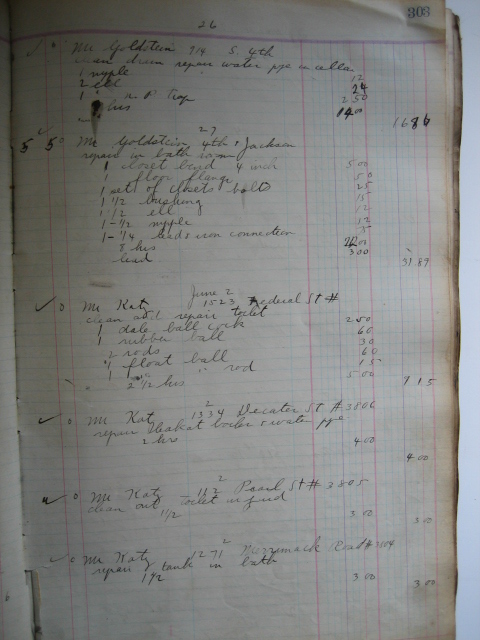 303
26
Mr Goldstein 914 S 4th
clean drain repair water pipe in cellar
1 nyple 12
2 ell 24
1 " P Trap 2 50
hrs 14 00
16 86
27
Mr Goldstein 4th & Jackson
repair in bath room
1 closet bend 4 inch 5 00
1 floor flange 50
1 set of closets bolts 25
1 1/2 bushing 15
1 1/2 ell 12
1-1/2 nyple 12
1-1/4 lead & iron connection 75
8 hrs 22 00
lead 3 00
31 89
June 2
Mr Katz 1523 Federal St #
clean out & repair toilet
1 dale ball cock 2 50
1 rubber ball 60
2 rods 30
1 float ball 60
1 " rod 15
2 1/2 hrs 5 00
9 15
2
Mr Katz 1334 Decater St # 3806
repair boiler & water ppe
2 hrs 4 00
4 00
2
Mr Katz 112 Pearl St # 3805
clean out toilet
1 1/2 3 00
3 00
2
Mr Katz 1271 Merremack Road # 3804
repair tank in bath
1 1/2 3 00
3 00